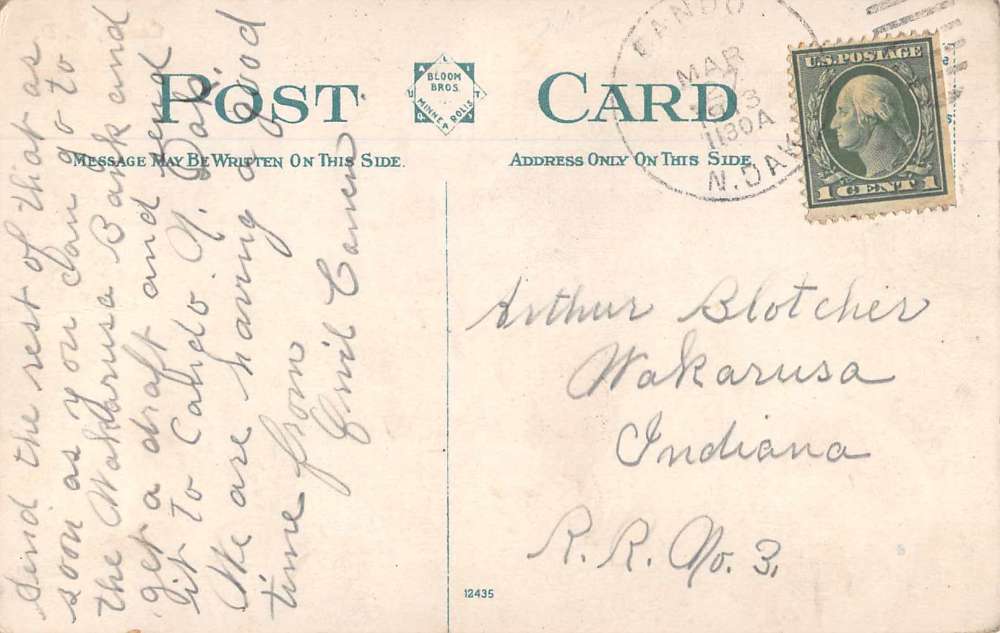 POST CARD
BLOOM
BROS.
MINNEAPOLIS
QUALITY
MESSAGE MAY BE WRITTEN ON THIS SIDE.
ADDRESS ONLY ON THIS SIDE
CANDO
MAR
7
1130A
N. DAK
U.S. POSTAGE
1 CENT 1
Send the rest of that as
soon as you can go to
the Wakarusa Bank and
get a draft and send
it to Cando N. Dak.
We are having a good
time from
Arthur Blotcher
Wakarusa
Indiana
R. R. No. 3.
12435